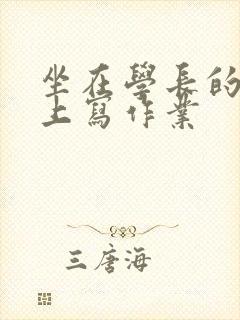 坐在學長的
上寫作業
三唐海